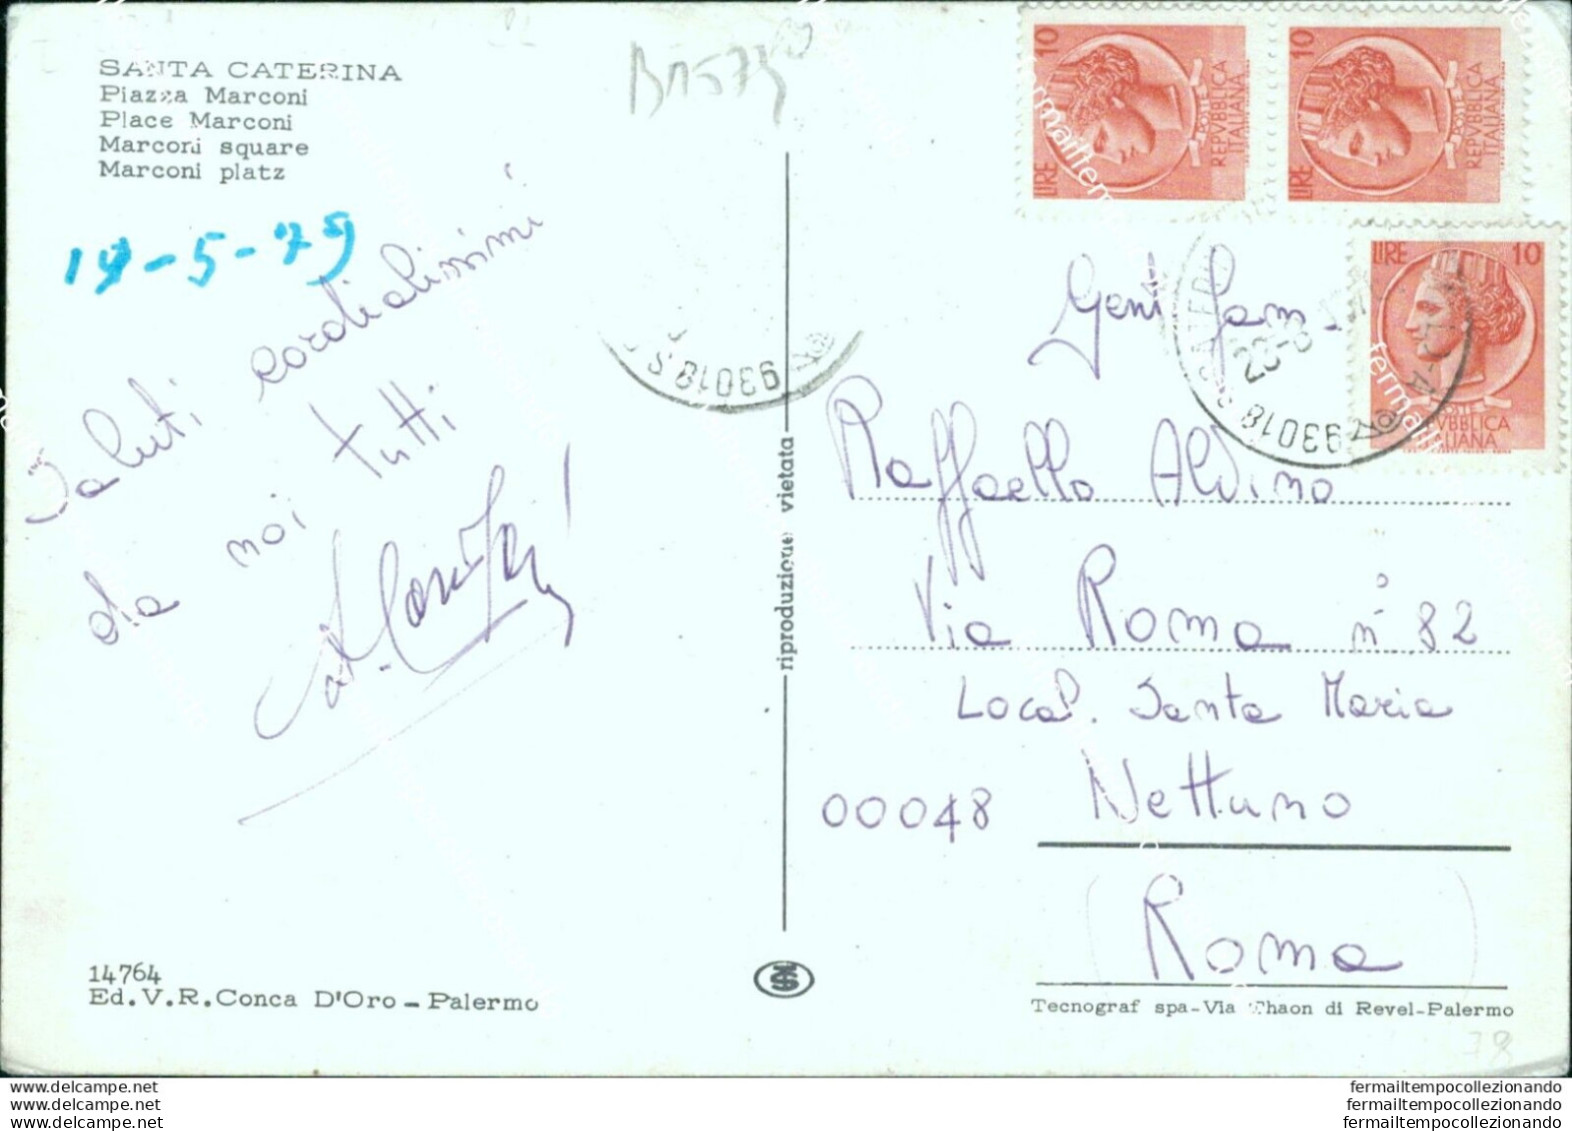 SANTA CATERINA
Piazza Marconi
Place Marconi
Marconi square
Marconi platz
Saluti cordialissimi
da noi tutti
14764
Ed.V.R.Conca D'Oro - Palermo
riproduzione vietata
10
LIRE
POSTE
REPVBBLICA
ITALIANA
10
LIRE
POSTE
REPVBBLICA
ITALIANA
LIRE 10
93018 S.
93018
Gent. Fam.
Raffaello Aldino
Via Roma n° 82
Local. Santa Maria
00048 Nettuno
(Roma)
Tecnograf spa-Via Thaon di Revel-Palermo
78
delcampe.net
delcampe.net
delcampe.net
fermailtempocollezionando
fermailtempocollezionando
fermailtempocollezionando